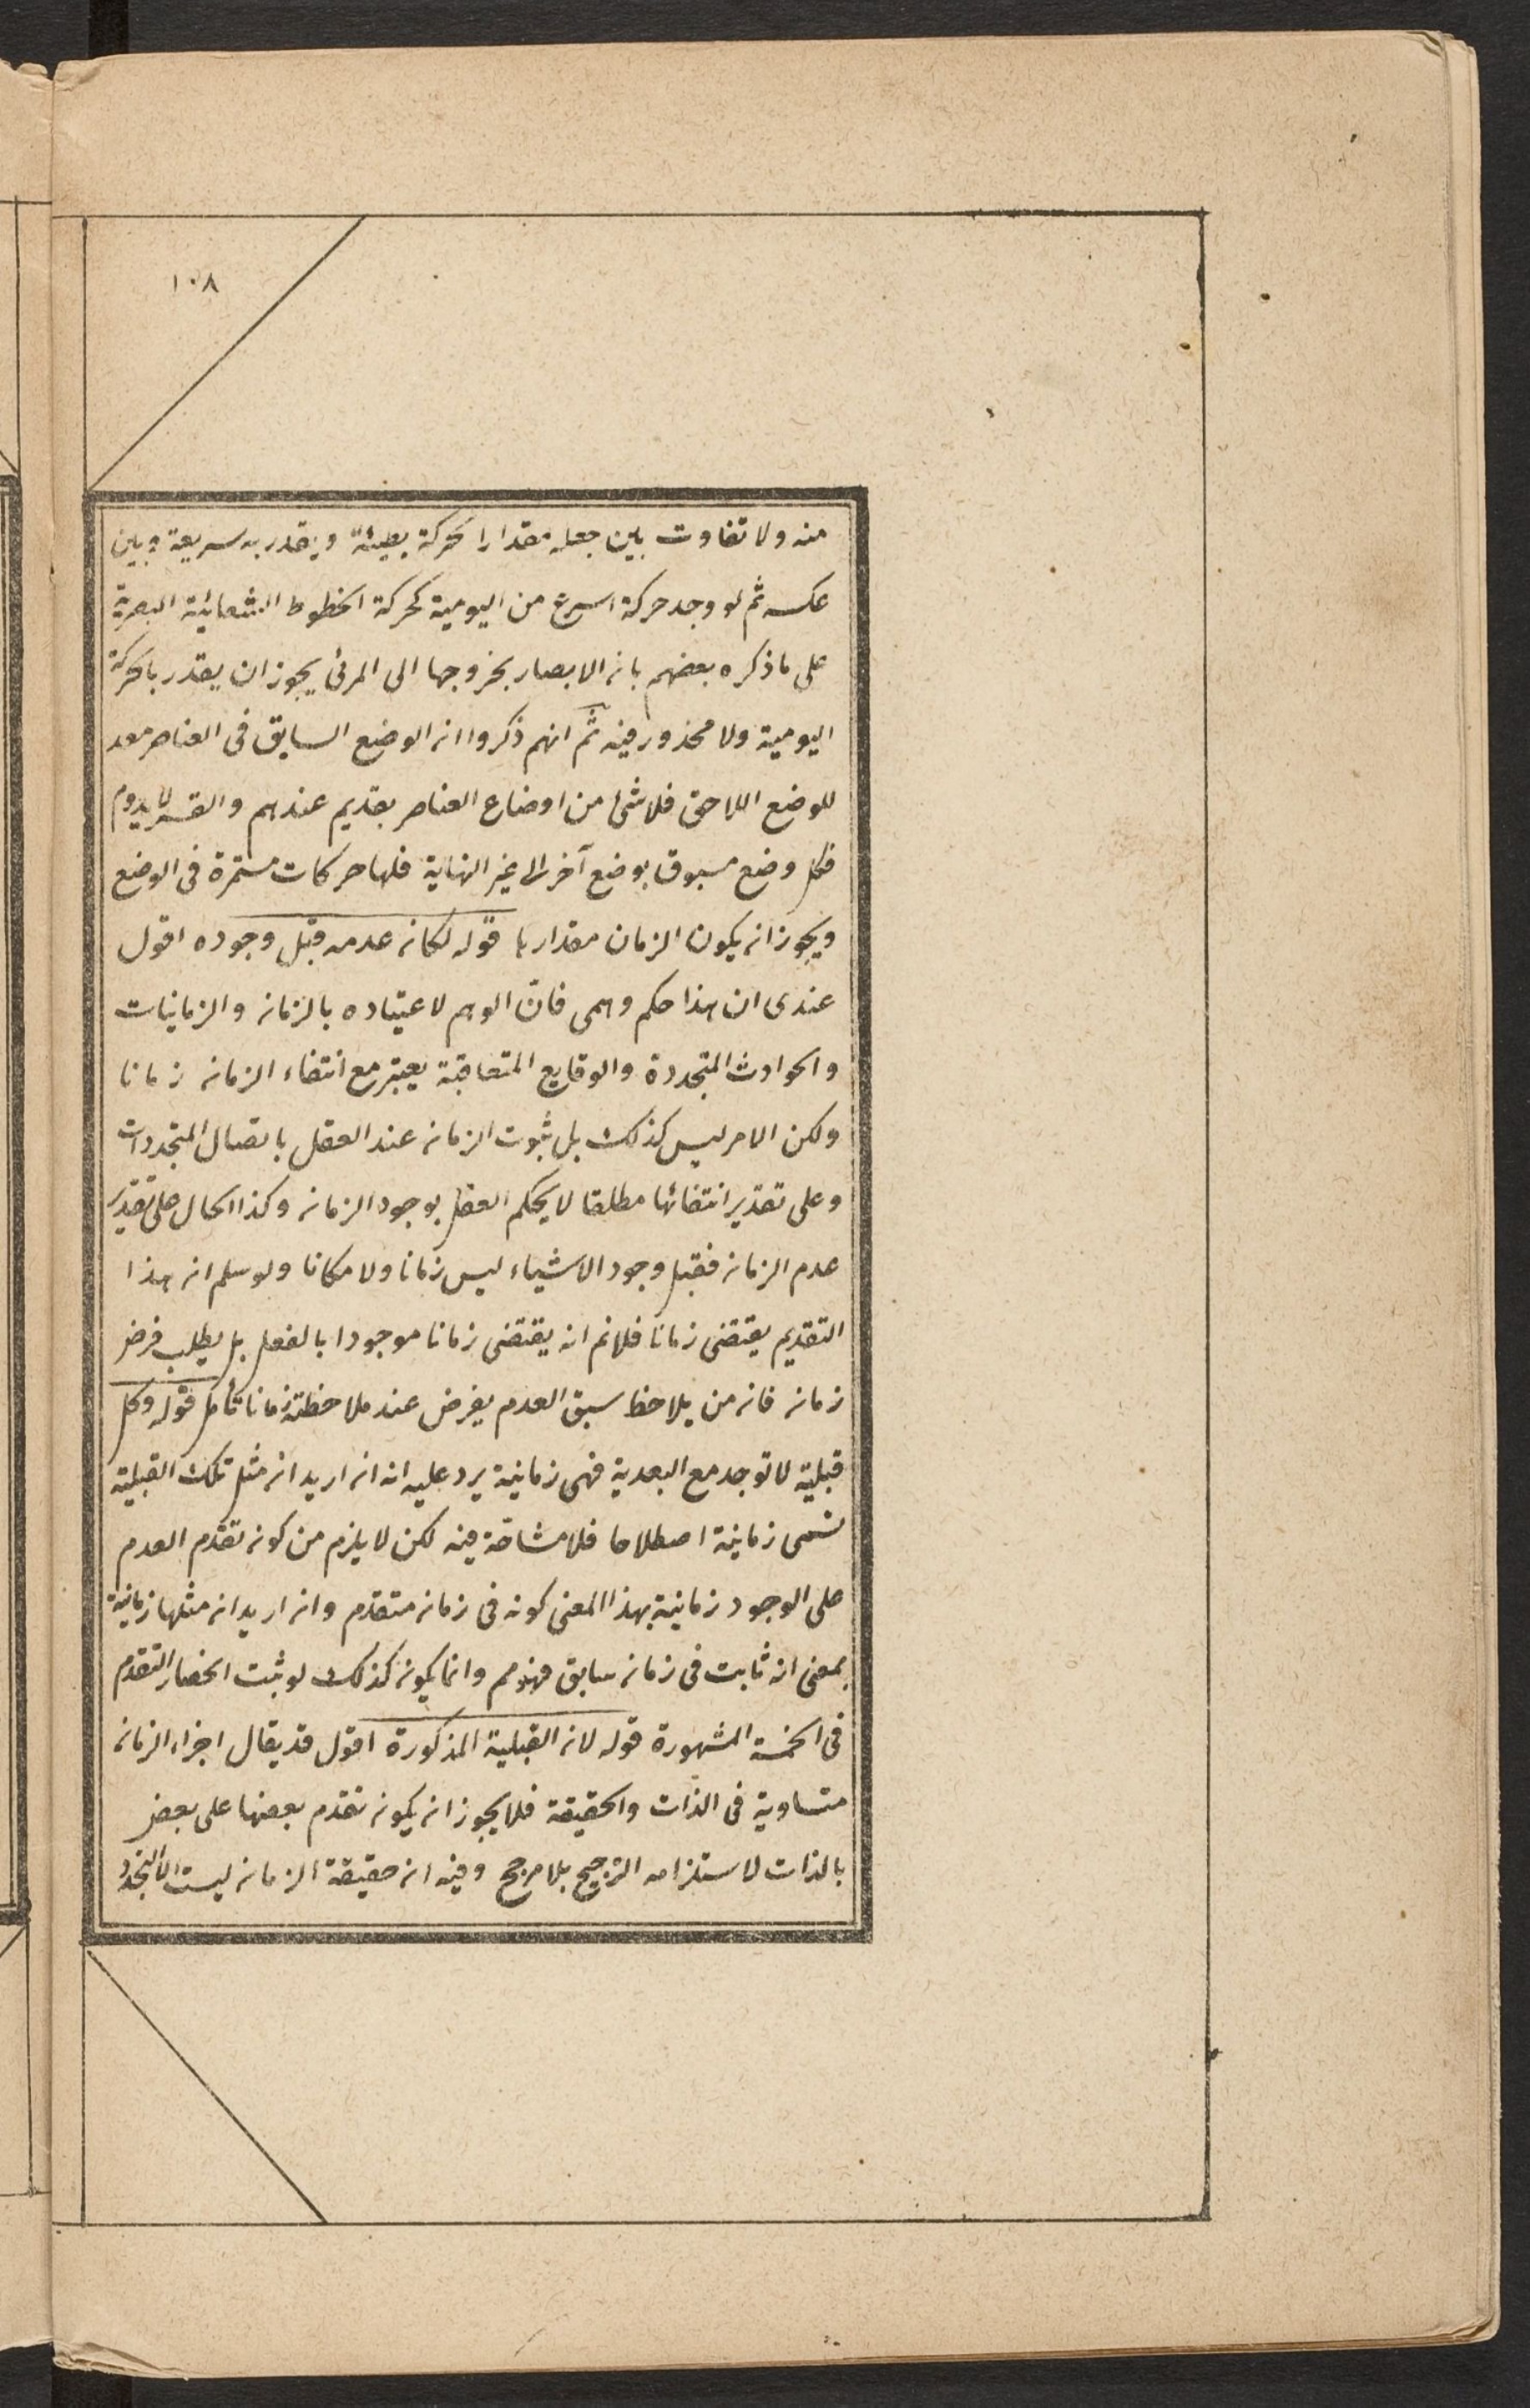 ١٠٨
منه ولا تفاوت بين جعله مقدارا لحركة بطيئة ويقدر به سريعة وبين
عكسه ثم لو وجد حركة اسرع من اليومية كحركة الخطوط الشعائية البصرية
على ما ذكره بعضهم بان الابصار بخروجها الى المرئى يجوز ان يقدر بالحركة
اليومية ولا محذور فيه ثم انهم ذكروا ان الوضع السابق فى العناصر معد
للوضع اللاحق فلا شئ من اوضاع العناصر بقديم عندهم والقسر لا يدوم
فكل وضع مسبوق بوضع آخر الى غير النهاية فلها حركات مستمرة فى الوضع
ويجوز ان يكون الزمان مقدارها قوله لكان عدمه قبل وجوده اقول
عندى ان هذا حكم وهمى فان الوهم لاعتياده بالزمان والزمانيات
والحوادث المتجددة والوقايع المتعاقبة يعتبر مع انتفاء الزمان زمانا
ولكن الامر ليس كذلك بل ثبوت الزمان عند العقل باتصال المتجددات
وعلى تقدير انتفائها مطلقا لا يحكم العقل بوجود الزمان وكذا الحال على تقدير
عدم الزمان فقبل وجود الاشياء ليس زمانا ولا مكانا ولو سلم ان هذا
التقديم يقتضى زمانا فلانم انه يقتضى زمانا موجودا بالفعل بل يطلب فرض
زمان فان من يلاحظ سبق العدم يفرض عند ملاحظته زمانا تأمل قوله وكل
قبلية لا توجد مع البعدية فهى زمانية يرد عليه انه ان اريد ان مثل تلك القبلية
تسمى زمانية اصطلاحا فلا مشاحة فيه لكن لا يلزم من كون تقدم العدم
على الوجود زمانية بهذا المعنى كونه فى زمان متقدم وان اريد ان مثلها زمانية
بمعنى انه ثابت فى زمان سابق فهو مم وانما يكون كذلك لو ثبت انحصار التقدم
فى الخمسة المشهورة قوله لان القبلية المذكورة اقول قد يقال اجزاء الزمان
متساوية فى الذات والحقيقة فلا يجوز ان يكون تقدم بعضها على بعض
بالذات لاستلزامه الترجيح بلا مرجح وفيه ان حقيقة الزمان ليست الا التجدد